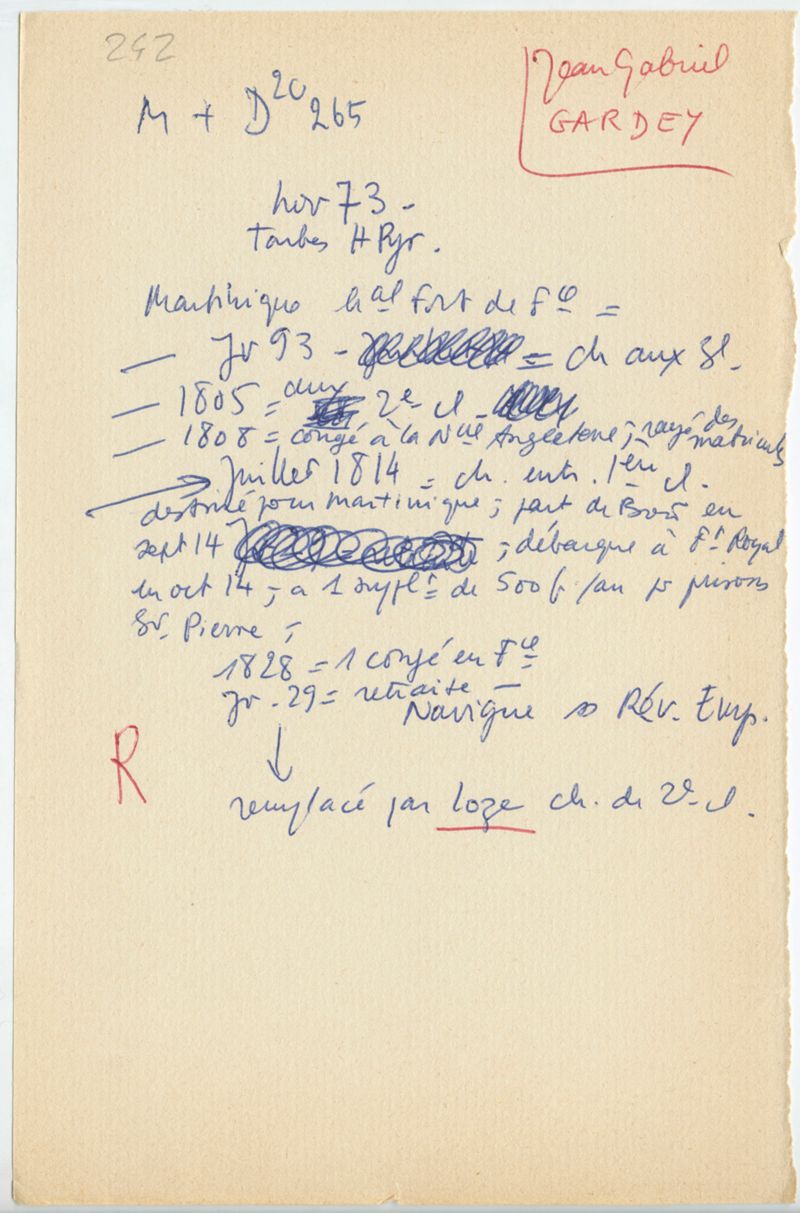 242
Jean Gabriel
GARDEY
M + D 20 265
nov 73 -
Tarbes H Pyr.
Martinique hal Fort de Fce =
— Jr 93 - = ch aux 3l.
— 1805 = aux 2e cl -
— 1808 = congé à la Nlle Angleterre ; rayé des matricules
Juillet 1814 = ch. entr. 1ère cl.
destiné pour Martinique ; part de Brest en
sept 14 ; débarque à Ft Royal
en oct 14 ; a 1 supplt de 500 f /an pr prisons
St. Pierre ;
1828 = 1 congé en Fce
Jr. 29 = retraite —
Navigue so Rév. Emp.
R
remplacé par Loze ch. de 2e cl.